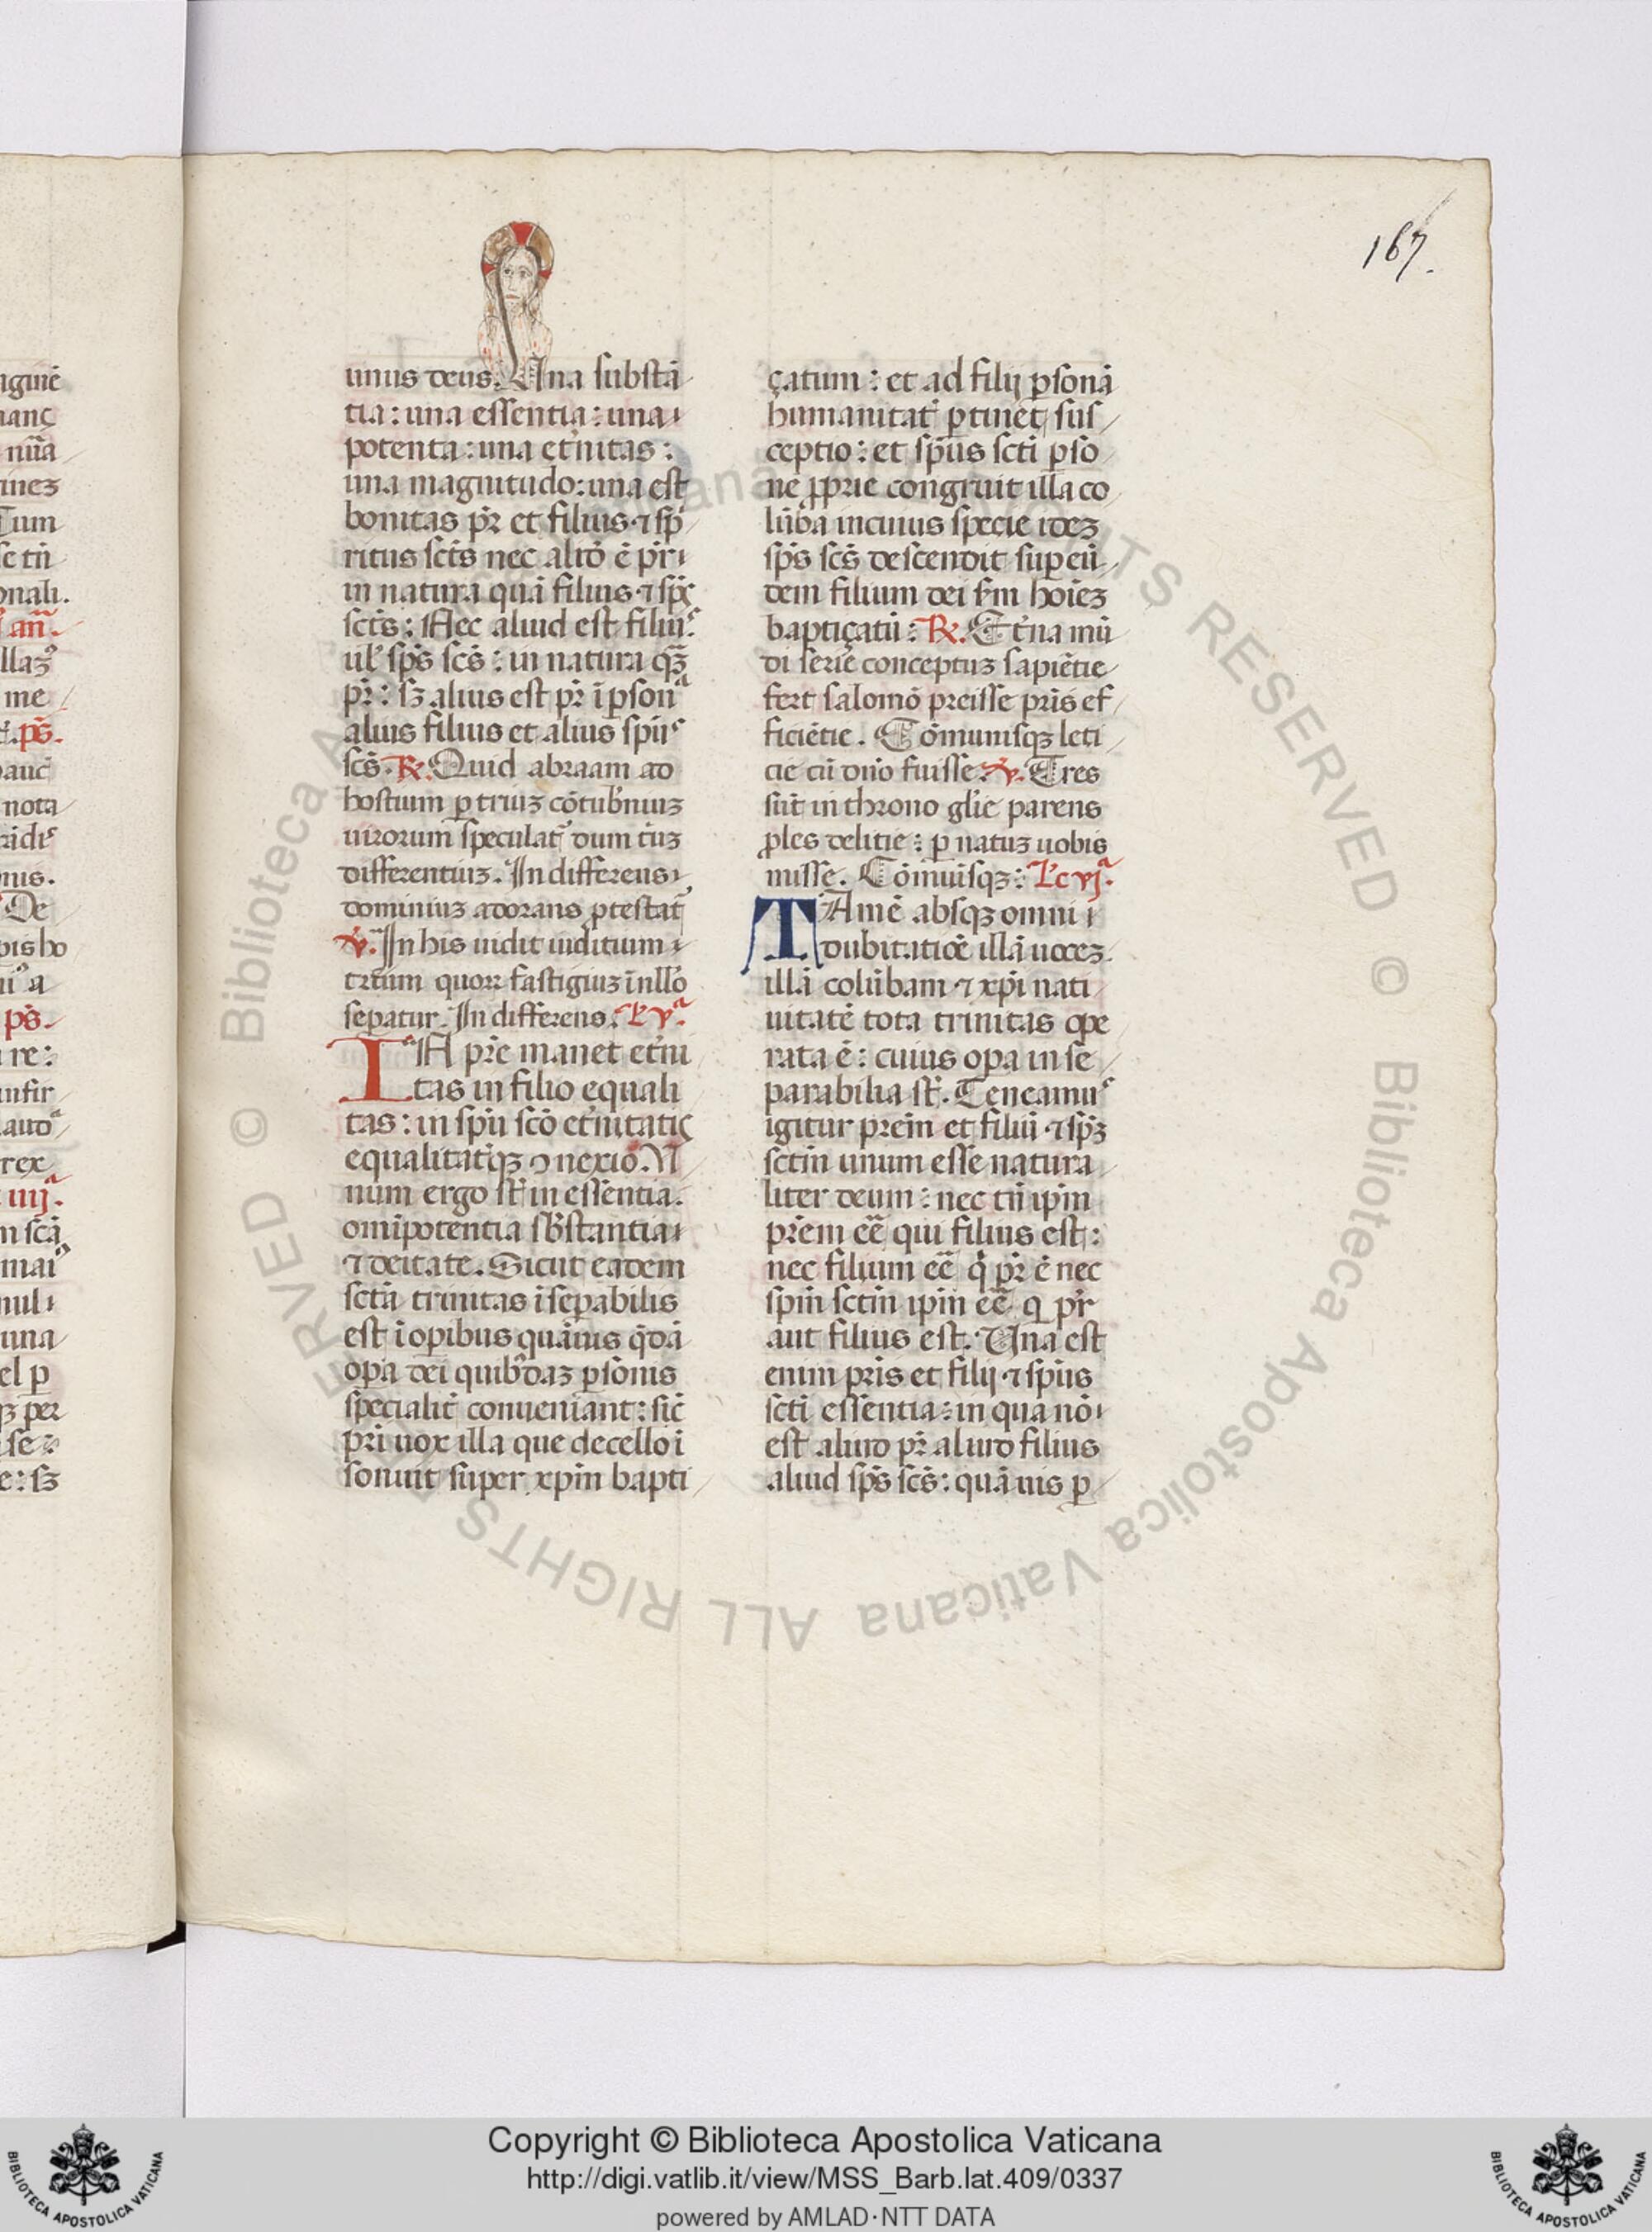 167.
unus deus. Una substā
tia: una essentia: una
potenta: una et̾nitas:
una magnitudo: una est
bonitas pr̄ et filius ⁊ sp̄
ritus sct̄s nec aliđ ē pr̄i
in natura quā filius ⁊ sp̄s
sct̄s: Nec aliud est filius
ul̾ sp̄s scs̄: in natura qȝ
pr̄: sȝ alius est pr̄ ī ꝑsona
alius filius et alius spūs
scs̄. R. Quid abraam ad
hostium ꝑ triuȝ cōtub̾niuȝ
uirorum speculat̾ dum t̾uȝ
differentiuȝ. Indifferens
dominuȝ adorans ꝓtestat̾
V. In his uidit iuditium
trium quoꝝ fastigiuȝ ī nllō
seꝑatur. Indifferens. L̾ vᵃ.
IN pr̄e manet et̾ni
tas in filio equali
tas: in spū scō et̾nitatis
equalitatisqȝ ꝯnexio. U
num ergo st̄ in essentia.
omīpotentia sb̾stantia
⁊ deitate. Sicut eadem
sctā trinitas īseꝑabilis
est ī opibus quāuis qđā
oꝑa dei quib̾daȝ ꝑsonis
specialit̾ conueniant: sic̾
pr̄i uox illa que de cello ī
sonuit super xp̄m bapti
çatum: et ad filij ꝑsonā
humanitat̾ ꝑtinet sus
ceptio: et spūs scti ꝑso
ne ꝓprie congruit illa co
lūba in cuius specie ideȝ
sp̄s scs̄ descendit suꝑ eū
dem filium dei sm̄ hoīeȝ
baptiçatū: R. Et̾na mū
di serie conceptuȝ sapiētie
fert salomō preisse pr̄is ef
ficiētie. Cōmunisqȝ leti
cie cū duo fuisse. V. Tres
sūt in throno gl̄ie parens
ples delitie: ꝑ natuȝ uobis
misse. Cōmuīsqȝ: L̾c vjᵃ.
TAmē absqȝ omni
dubitatiōe illā uoceȝ
illā colūbam ⁊ xp̄i nati
uitatē tota trinitas ope
rata ē: cuius oꝑa inse
parabilia st̄. Teneamus
igitur pr̄em et filiū ⁊ sp̄ȝ
sctm̄ unum esse natura
liter deum: nec tn̄ ip̄m
pr̄em eē qui filius est:
nec filium eē q̾ pr̄ ē nec
sp̄m sctm̄ ip̄m eē q̾ pr̄
aut filius est. Una est
enim pr̄is et filij ⁊ spūs
scti essentia: in qua nō
est aliud pr̄ aliud filius
aliud sp̄s scs̄: quāuis ꝑ
© Biblioteca Apostolica Vaticana ALL RIGHTS RESERVED
Copyright © Biblioteca Apostolica Vaticana
http://digi.vatlib.it/view/MSS_Barb.lat.409/0337
powered by AMLAD·NTT DATA
BIBLIOTECA APOSTOLICA VATICANA
BIBLIOTECA APOSTOLICA VATICANA